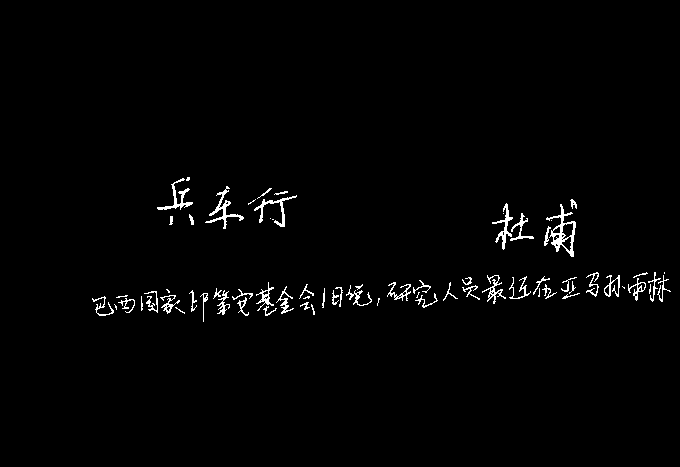 兵车行
杜甫
巴西国家印第安基金会1日说,研究人员最近在亚马孙雨林